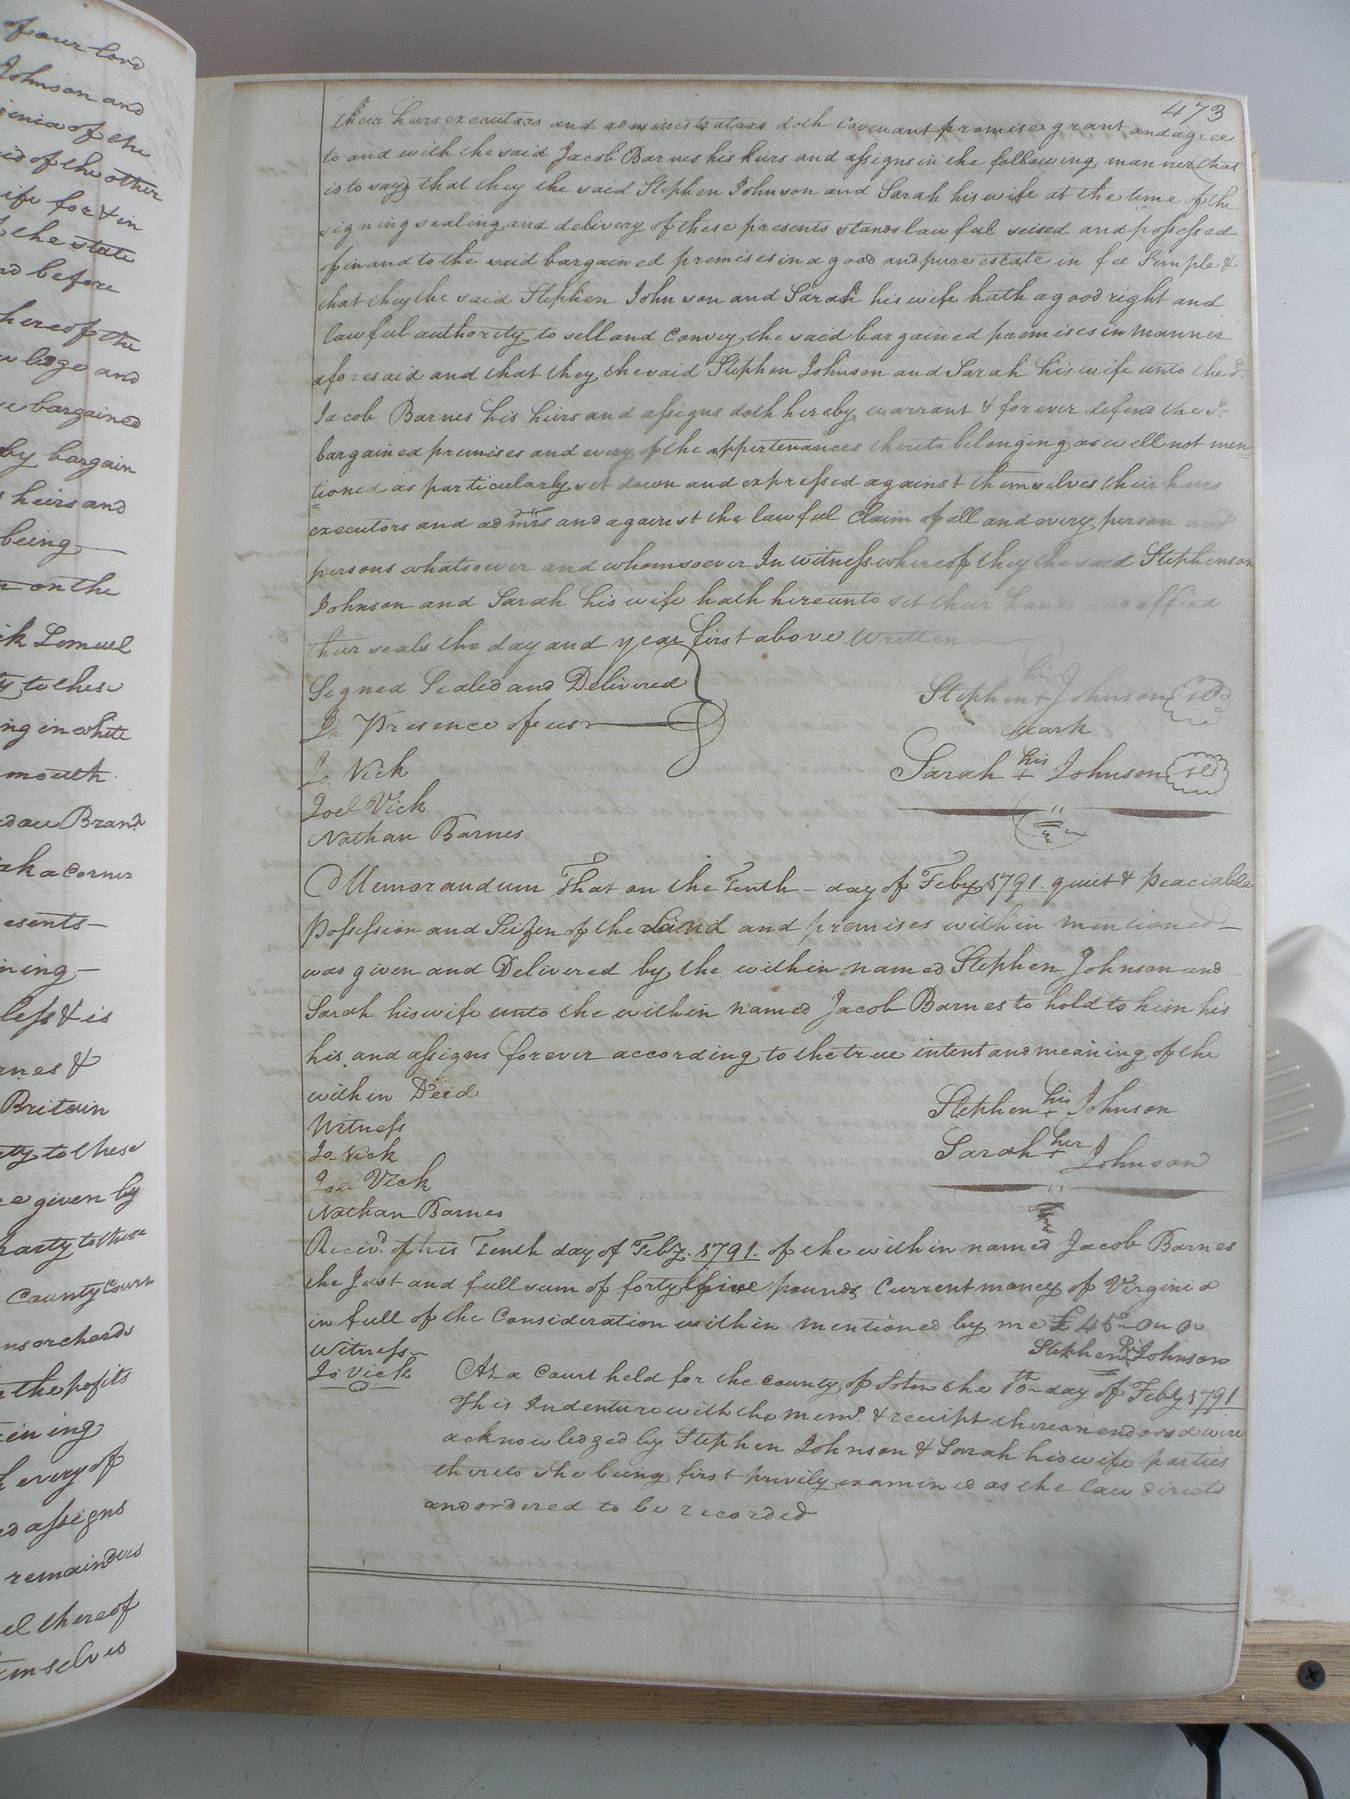 of our Lord
Johnson and
ginia of the
said of the other
wife for & in
the state
and before
hereof the
ledge and
bargained
by bargain
heirs and
being
on the
Lemuel
to these
ing in white
mouth
Brand
a corner
esents
ning
less & is
rnes &
Britain
ty to these
given by
party to these
County Court
ns orchards
the profits
tining
every of
assigns
remainders
thereof
emselves
473
their heirs executors and administrators doth Covenant promise grant and agree
to and with the said Jacob Barnes his heirs and assigns in the following manner (that
is to say) that they the said Stephen Johnson and Sarah his wife at the time of the
signing sealing and delivery of these presents stands lawful seised and possessed
of in and to the said bargained premises in a good and pure estate in fee Simple &
that they the said Stephen Johnson and Sarah his wife hath a good right and
lawful authority to sell and Convey the said bargained premises in manner
aforesaid and that they the said Stephen Johnson and Sarah his wife unto the sd.
Jacob Barnes his heirs and assigns doth hereby warrant & forever defend the sd.
bargained premises and every of the appertenances thereto belonging as well not men
tioned as particularly set down and expressed against themselves their heirs
executors and admrs and against the lawful Claim of all and every person and
persons whatsoever and whomsoever In witness whereof they the said Stephenson
Johnson and Sarah his wife hath hereunto set their hands and affixd
their seals the day and year first above Written
Signed Sealed and Delivered
In Presence of us
Jo. Vick
Joel Vick
Nathan Barnes
his
Stephen + Johnson
Mark
Sarah his + Johnson
Memorandum That on the Tenth day of Feby. 1791. quiet & peaciable
Possession and Seizen of the Land and premises within mentioned
was given and Delivered by the within named Stephen Johnson and
Sarah his wife unto the within named Jacob Barnes to hold to him his
his and assigns forever according to the true intent and meaning of the
within Deed
Witness
Jo Vick
Joel Vick
Nathan Barnes
Stephen his + Johnson
Sarah her + Johnson
Receivd. of this Tenth day of Feby. 1791. of the within named Jacob Barnes
the Just and full sum of forty five pounds Current money of Virginia
in full of the Consideration within mentioned by me £45-0-0
Witness
Jo Vick
Stephen Johnson
At a Court held for the County of Soton the 10th day of Feby 1791
This Indenture with the memo. & receipt thereon endorsd were
acknowledged by Stephen Johnson & Sarah his wife parties
thereto she being first privily examined as the law directs
and ordered to be recorded